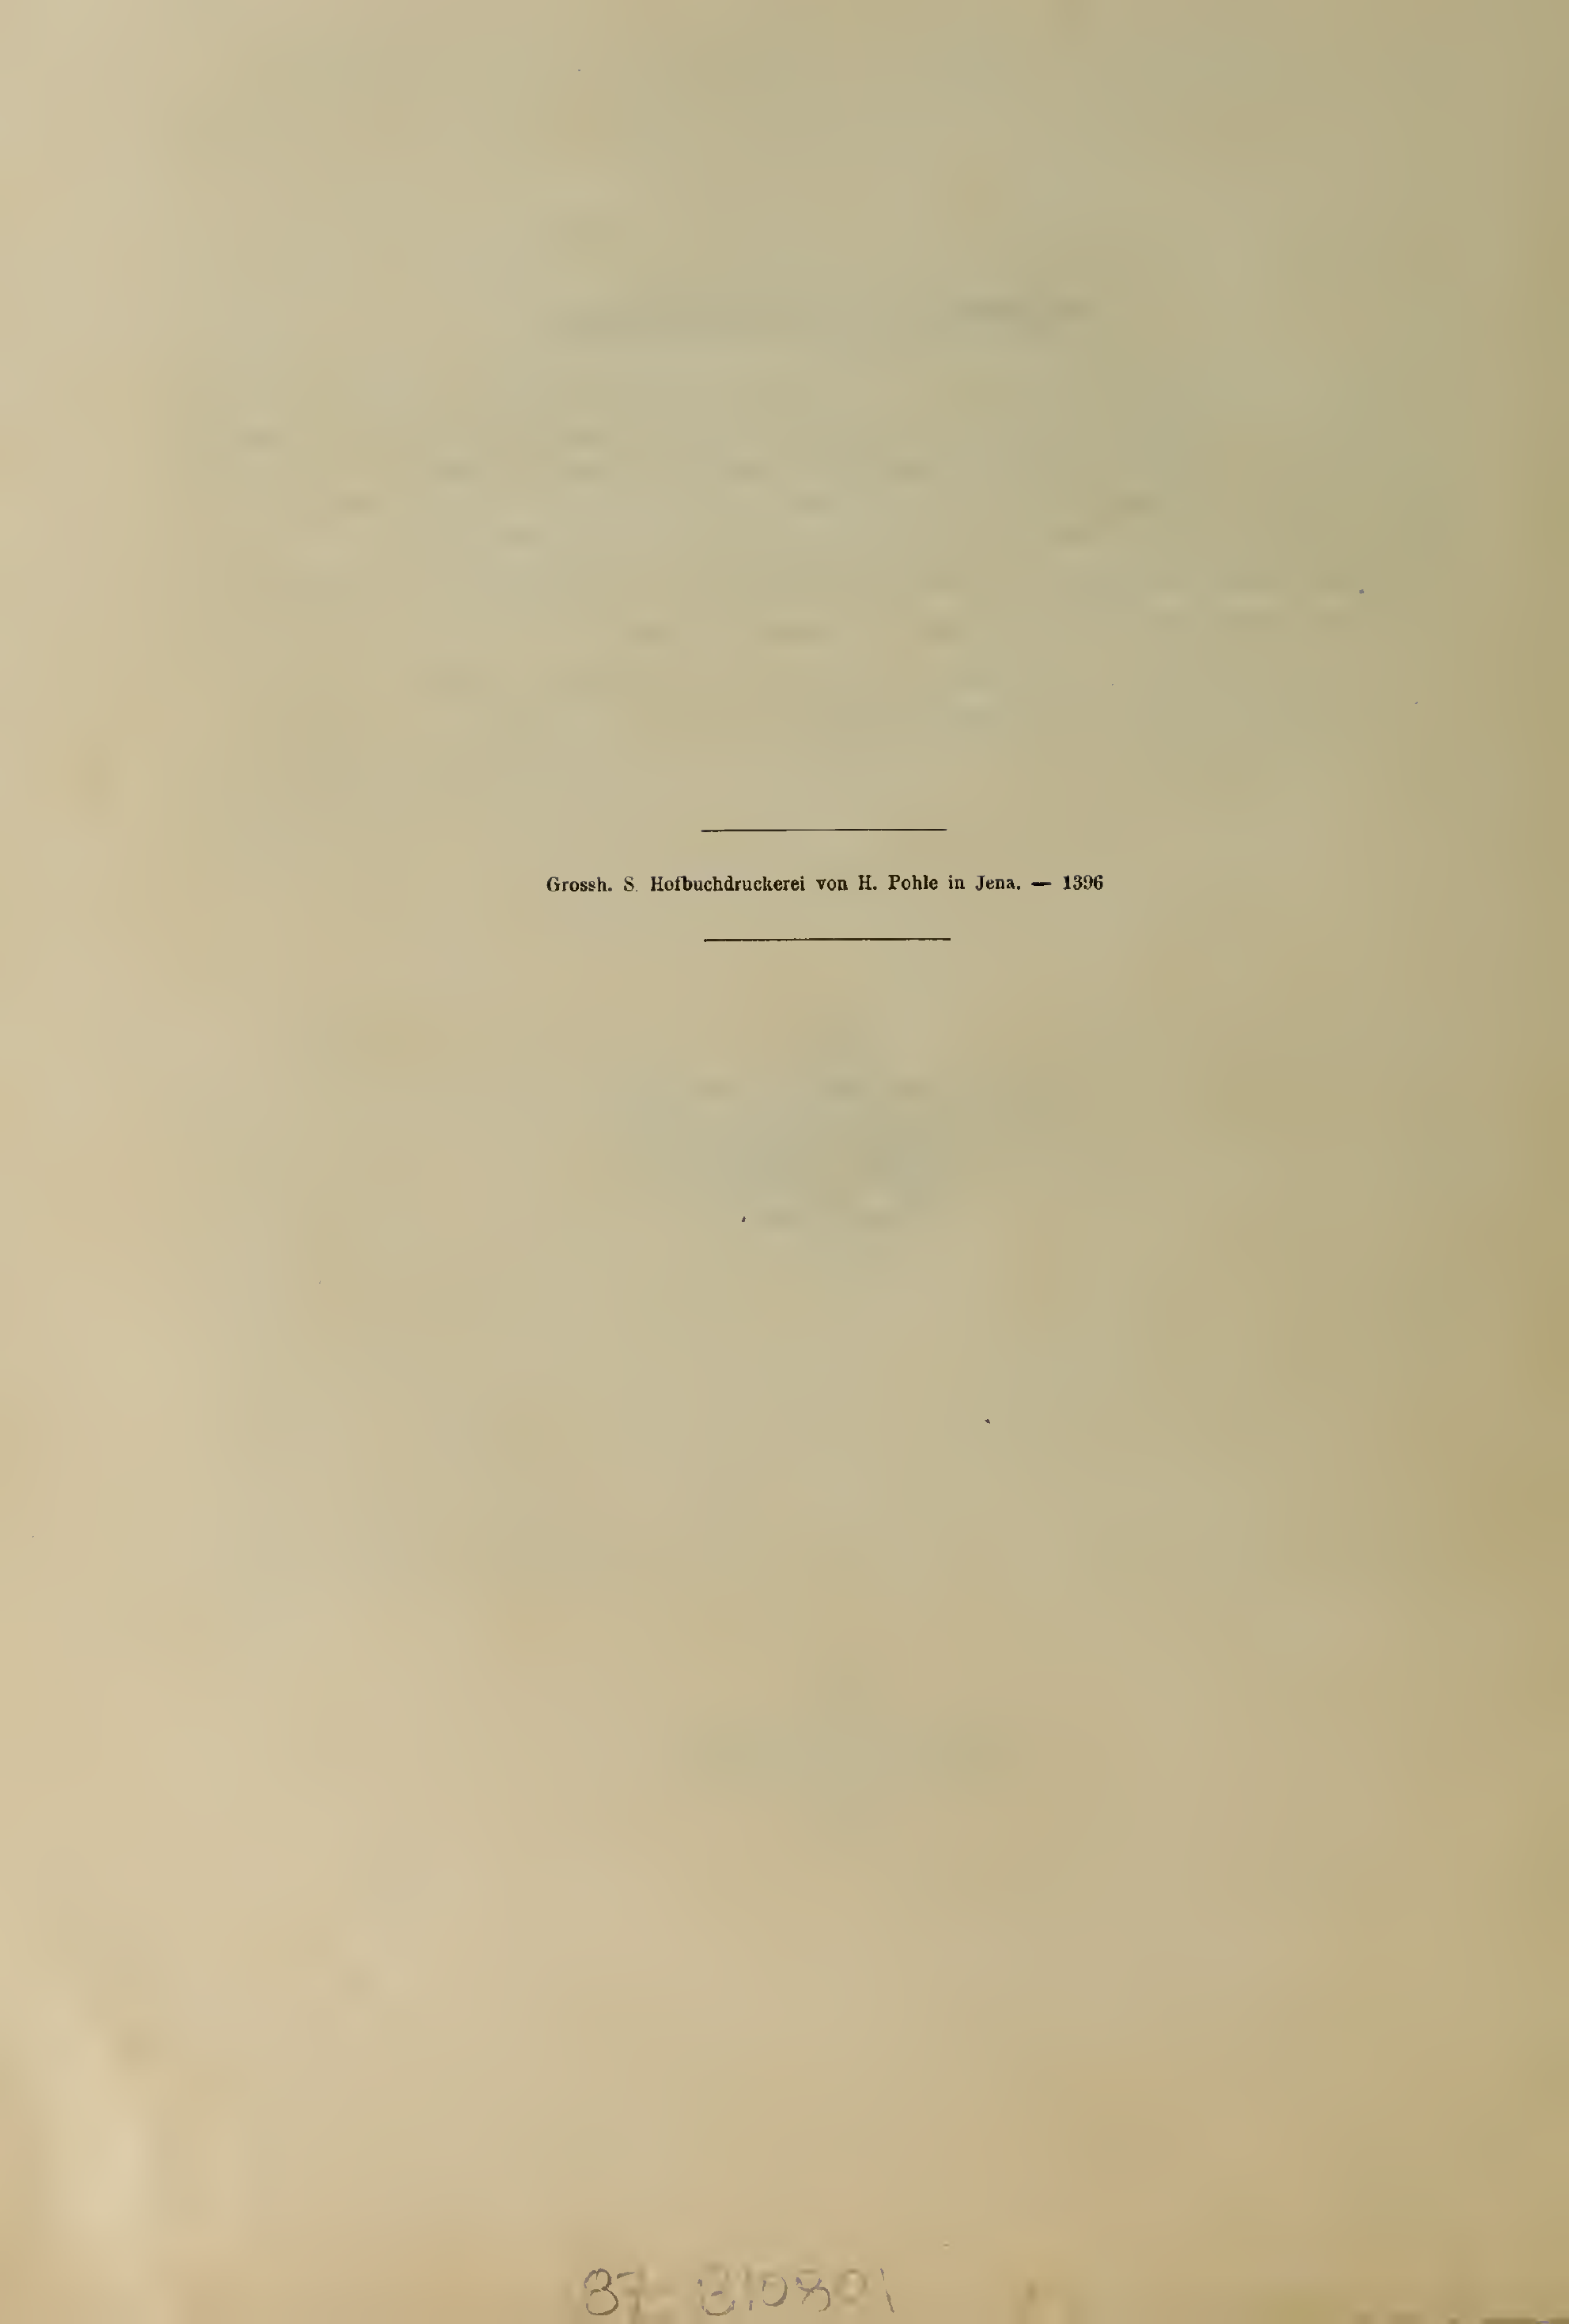 Grossh. S. Hofbuchdruckerei von H. Pohle in Jena. — 1396